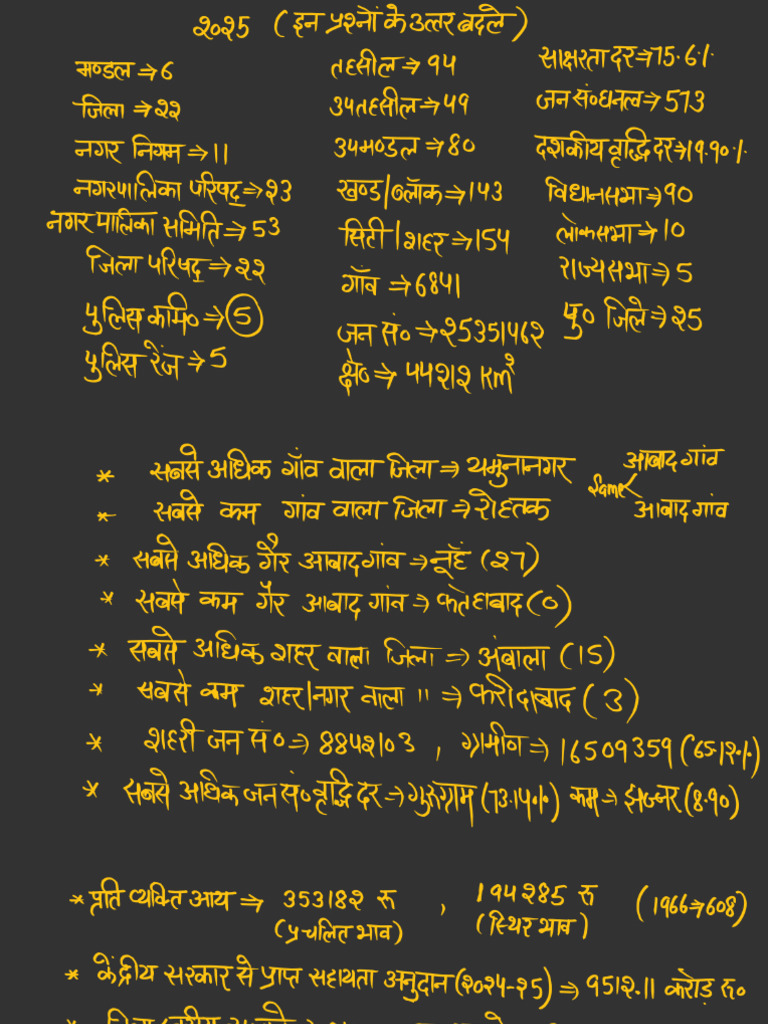 २०२5 (इन प्रश्नों के उत्तर बदले)
मण्डल ⇒ 6
जिला ⇒ २२
नगर निगम ⇒ 11
नगरपालिका परिषद् ⇒ २3
नगर पालिका समिति ⇒ 53
जिला परिषद् ⇒ २२
पुलिस कमि० ⇒ 5
पुलिस रेंज ⇒ 5
तहसील ⇒ 94
उपतहसील ⇒ 49
उपमण्डल ⇒ 80
खण्ड/ब्लॉक ⇒ 143
सिटी/शहर ⇒ 154
गाँव ⇒ 6841
जन सं० ⇒ २535146२
क्षे० ⇒ 44२1२ KM²
साक्षरता दर ⇒ 75.6%
जन सं० घनत्व ⇒ 573
दशकीय वृद्धि दर ⇒ 19.90%
विधानसभा ⇒ 90
लोकसभा ⇒ 10
राज्यसभा ⇒ 5
पु० जिले ⇒ २5
* सबसे अधिक गाँव वाला जिला ⇒ यमुनानगर आबाद गांव
* सबसे कम गांव वाला जिला ⇒ रोहतक Same आबाद गांव
* सबसे अधिक गैर आबाद गांव ⇒ नूहं (२7)
* सबसे कम गैर आबाद गांव ⇒ फतेहाबाद (0)
* सबसे अधिक शहर वाला जिला ⇒ अंबाला (15)
* सबसे कम शहर/नगर वाला '' ⇒ फरीदाबाद (3)
* शहरी जन सं० ⇒ 884२103, ग्रामीण ⇒ 16509359 (65.1२%)
* सबसे अधिक जन सं० वृद्धि दर ⇒ गुरुग्राम (73.14%) कम ⇒ झज्जर (8.90)
* प्रति व्यक्ति आय ⇒ 35318२ रू, 194२85 रू (1966⇒608)
(प्रचलित भाव) (स्थिर भाव)
* केंद्रीय सरकार से प्राप्त सहायता अनुदान (२०२4-२5) ⇒ 951२.11 करोड़ रू०